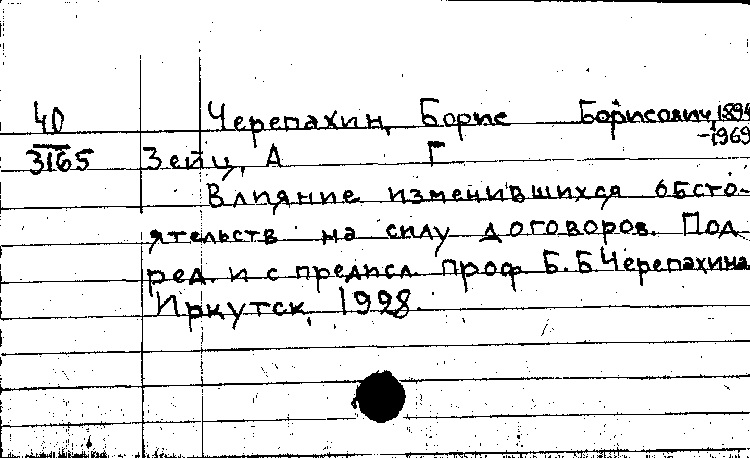 40 Черепахин, Борис Борисович, 1894
-1969
3165 Зейц, А Г
Влияние изменившихся обсто-
ятельств на силу договоров. Под
ред. и с предисл. проф Б.Б.Черепахина
Иркутск, 1928.